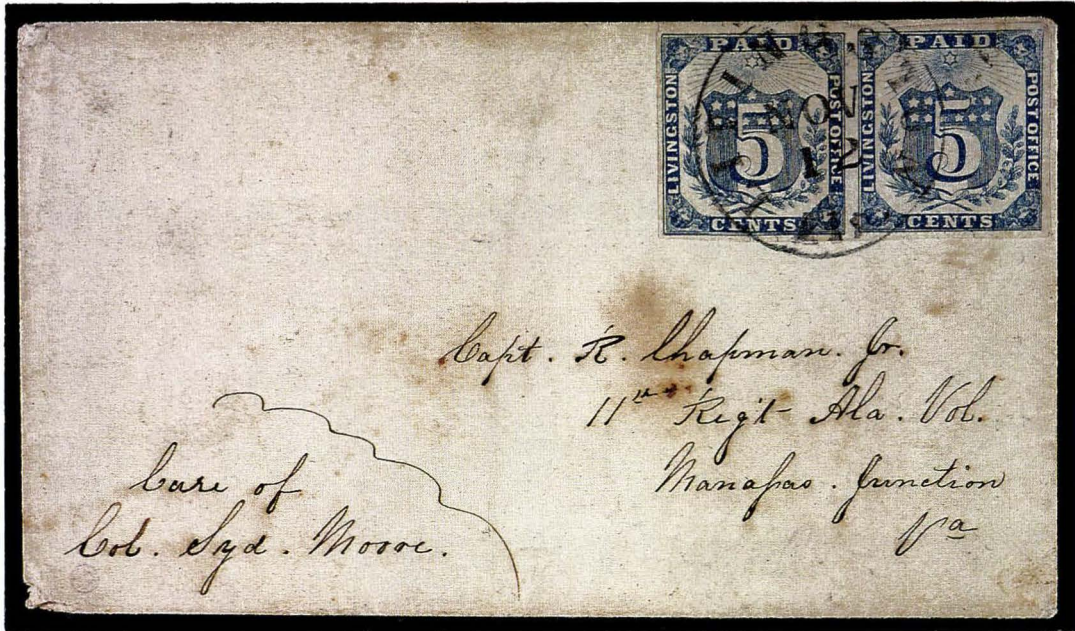 PAID PAID
LIVINGSTON 5 POST OFFICE LIVINGSTON 5 POST OFFICE
CENTS CENTS
NOV
12
Capt. R. Chapman. Jr.
11th Regt Ala. Vol.
Manassas. Junction
Va
Care of
Col. Syd. Moore.